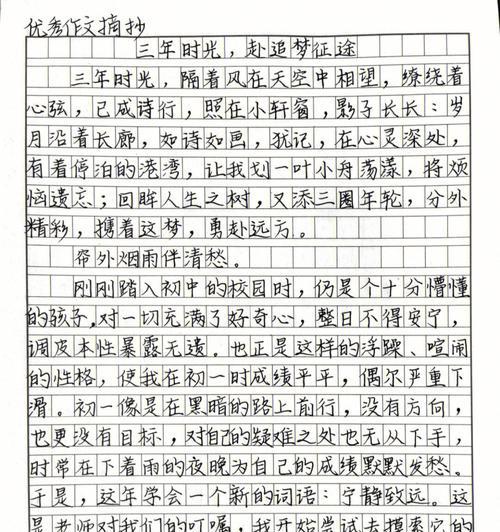 优秀作文摘抄
三年时光，赴追梦征途
三年时光，隔着风在天空中相望，缭绕着
心弦，已成诗行，照在小轩窗，影子长长：岁
月沿着长廊，如诗如画，犹记，在心灵深处，
有着停泊的港湾，让我划一叶小舟荡漾，将烦
恼遗忘；回眸人生之树，又添三圈年轮，分外
精彩，携着这梦，勇赴远方。
帘外烟雨伴清愁。
刚刚踏入初中的校园时，仍是个十分懵懂
的孩子，对一切充满了好奇心，整日不得安宁，
调皮本性暴露无遗。也正是这样的浮躁、喧闹
的性格，使我在初一时成绩平平，偶尔严重下
滑。初一像是在黑暗的路上前行，没有方向，
也更没有目标，对自己的疑难之处也无从下手，
时常在下着雨的夜晚为自己的成绩默默发愁。
于是，这年学会一个新的词语：宁静致远。这
是老师对我们的叮嘱，我开始尝试去摸索它的